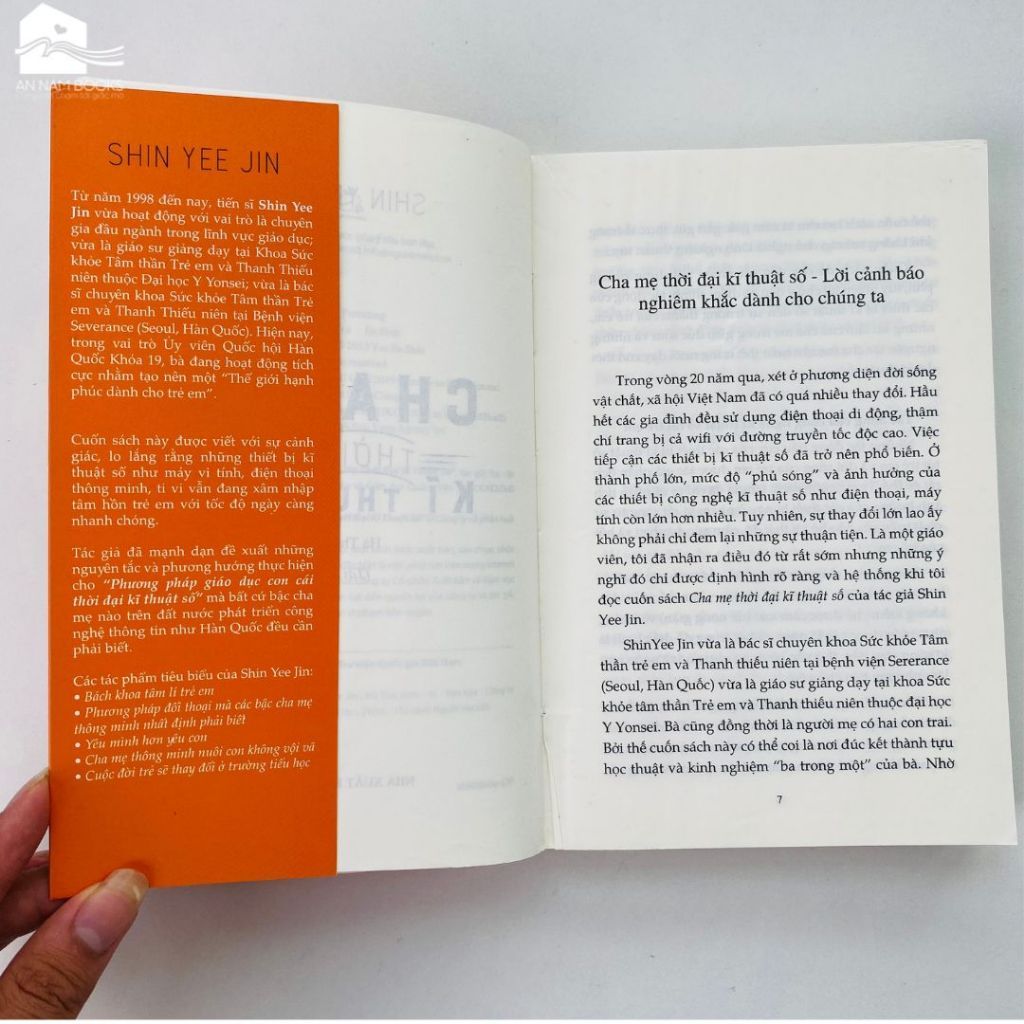 AN NAM BOOKS
SHIN YEE JIN
Từ năm 1998 đến nay, tiến sĩ Shin Yee
Jin vừa hoạt động với vai trò là chuyên
gia đầu ngành trong lĩnh vực giáo dục;
vừa là giáo sư giảng dạy tại Khoa Sức
khỏe Tâm thần Trẻ em và Thanh Thiếu
niên thuộc Đại học Y Yonsei; vừa là bác
sĩ chuyên khoa Sức khỏe Tâm thần Trẻ
em và Thanh Thiếu niên tại Bệnh viện
Severance (Seoul, Hàn Quốc). Hiện nay,
trong vai trò Ủy viên Quốc hội Hàn
Quốc Khóa 19, bà đang hoạt động tích
cực nhằm tạo nên một "Thế giới hạnh
phúc dành cho trẻ em".
Cuốn sách này được viết với sự cảnh
giác, lo lắng rằng những thiết bị kĩ
thuật số như máy vi tính, điện thoại
thông minh, ti vi vẫn đang xâm nhập
tâm hồn trẻ em với tốc độ ngày càng
nhanh chóng.
Tác giả đã mạnh dạn đề xuất những
nguyên tắc và phương hướng thực hiện
cho "Phương pháp giáo dục con cái
thời đại kĩ thuật số" mà bất cứ bậc cha
mẹ nào trên đất nước phát triển công
nghệ thông tin như Hàn Quốc đều cần
phải biết.
Các tác phẩm tiêu biểu của Shin Yee Jin:
• Bách khoa tâm lí trẻ em
• Phương pháp đối thoại mà các bậc cha mẹ
thông minh nhất định phải biết
• Yêu mình hơn yêu con
• Cha mẹ thông minh nuôi con không vội vã
• Cuộc đời trẻ sẽ thay đổi ở trường tiểu học
Cha mẹ thời đại kĩ thuật số - Lời cảnh báo
nghiêm khắc dành cho chúng ta
Trong vòng 20 năm qua, xét ở phương diện đời sống
vật chất, xã hội Việt Nam đã có quá nhiều thay đổi. Hầu
hết các gia đình đều sử dụng điện thoại di động, thậm
chí trang bị cả wifi với đường truyền tốc độc cao. Việc
tiếp cận các thiết bị kĩ thuật số đã trở nên phổ biến. Ở
thành phố lớn, mức độ "phủ sóng" và ảnh hưởng của
các thiết bị công nghệ kĩ thuật số như điện thoại, máy
tính còn lớn hơn nhiều. Tuy nhiên, sự thay đổi lớn lao ấy
không phải chỉ đem lại những sự thuận tiện. Là một giáo
viên, tôi đã nhận ra điều đó từ rất sớm nhưng những ý
nghĩ đó chỉ được định hình rõ ràng và hệ thống khi tôi
đọc cuốn sách Cha mẹ thời đại kĩ thuật số của tác giả Shin
Yee Jin.
ShinYee Jin vừa là bác sĩ chuyên khoa Sức khỏe Tâm
thần trẻ em và Thanh thiếu niên tại bệnh viện Sererance
(Seoul, Hàn Quốc) vừa là giáo sư giảng dạy tại khoa Sức
khỏe tâm thần Trẻ em và Thanh thiếu niên thuộc đại học
Y Yonsei. Bà cũng đồng thời là người mẹ có hai con trai.
Bởi thế cuốn sách này có thể coi là nơi đúc kết thành tựu
học thuật và kinh nghiệm "ba trong một" của bà. Nhờ
7